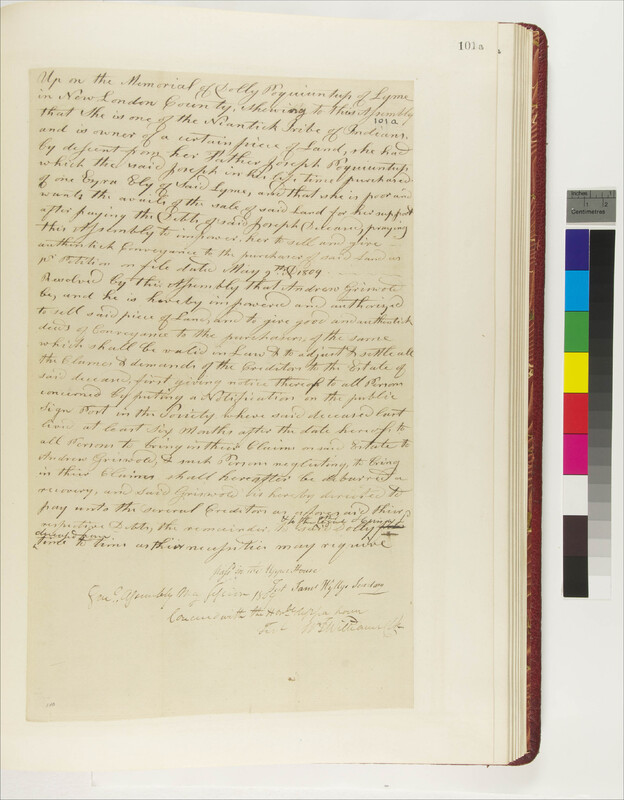 101a
Up on the Memorial of Dolly Poquiuntup of Lyme
in New London County, shewing to this Assembly
101a
that She is one of the Niantick Tribe of Indians,
and is owner of a certain piece of Land, she had
by descent from her Father Joseph Poquiuntup
which the said Joseph in his life time purchased
of one Ezra Ely of said Lyme, and that she is poor and
wants the avails of the sale of said Land for her support
after paying the Debts of said Joseph Deceas, praying
this Assembly to impower her to sell and give
authentick Conveyance to the purchaser of said Land as
pr Petition on file date May 9th 1809
Resolved by this Assembly that Andrew Griswold
be, and he is hereby impowered and authorized
to sell said piece of Land, and to give good and authentick
deed of Conveyance to the purchaser, of the same
which shall be valid in Law & to adjust & settle all
the Claims & demands of the Creditors to the Estate of
said deceased, first giving notice thereof to all Persons
concerned by puting a Notification on the public
Sign Post in the Society where said deceased last
live at least Six Months after the date hereof, to
all Persons to bring in their Claims on said Estate to
Andrew Griswold, & such Persons neglecting to bring
in their Claims shall hereafter be debarred a
recovery, and said Griswold is hereby directed to
pay unto the several Creditors as aforesaid their
respective Debts, the remainder to said Dolly
time to time as their necessities may require
Pass'd in the Upper House
Genl. Assembly May Session 1809 Test Saml Wyllys Secy
Concurred with the Honble Upper house
Test Wm Williams Clk
Inches 1 2
Centimetres